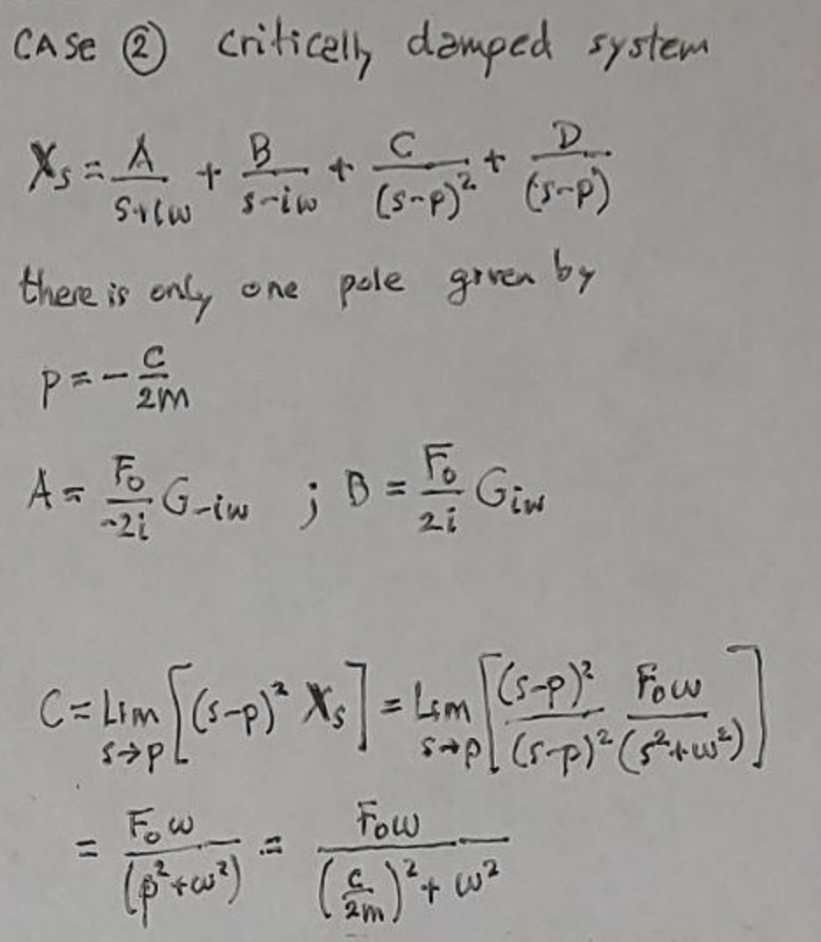 CASE ② critically damped system
X_s = A/(s+iω) + B/(s-iω) + C/(s-p)² + D/(s-p)
there is only one pole given by
p = - c/2m
A = F₀/-2i G_-iω ; B = F₀/2i G_iω
C = Lim s→p [(s-p)² X_s] = Lim s→p [(s-p)²/(s-p)² F₀ω/(s²+ω²)]
= F₀ω/(p²+ω²) = F₀ω/((c/2m)²+ω²)